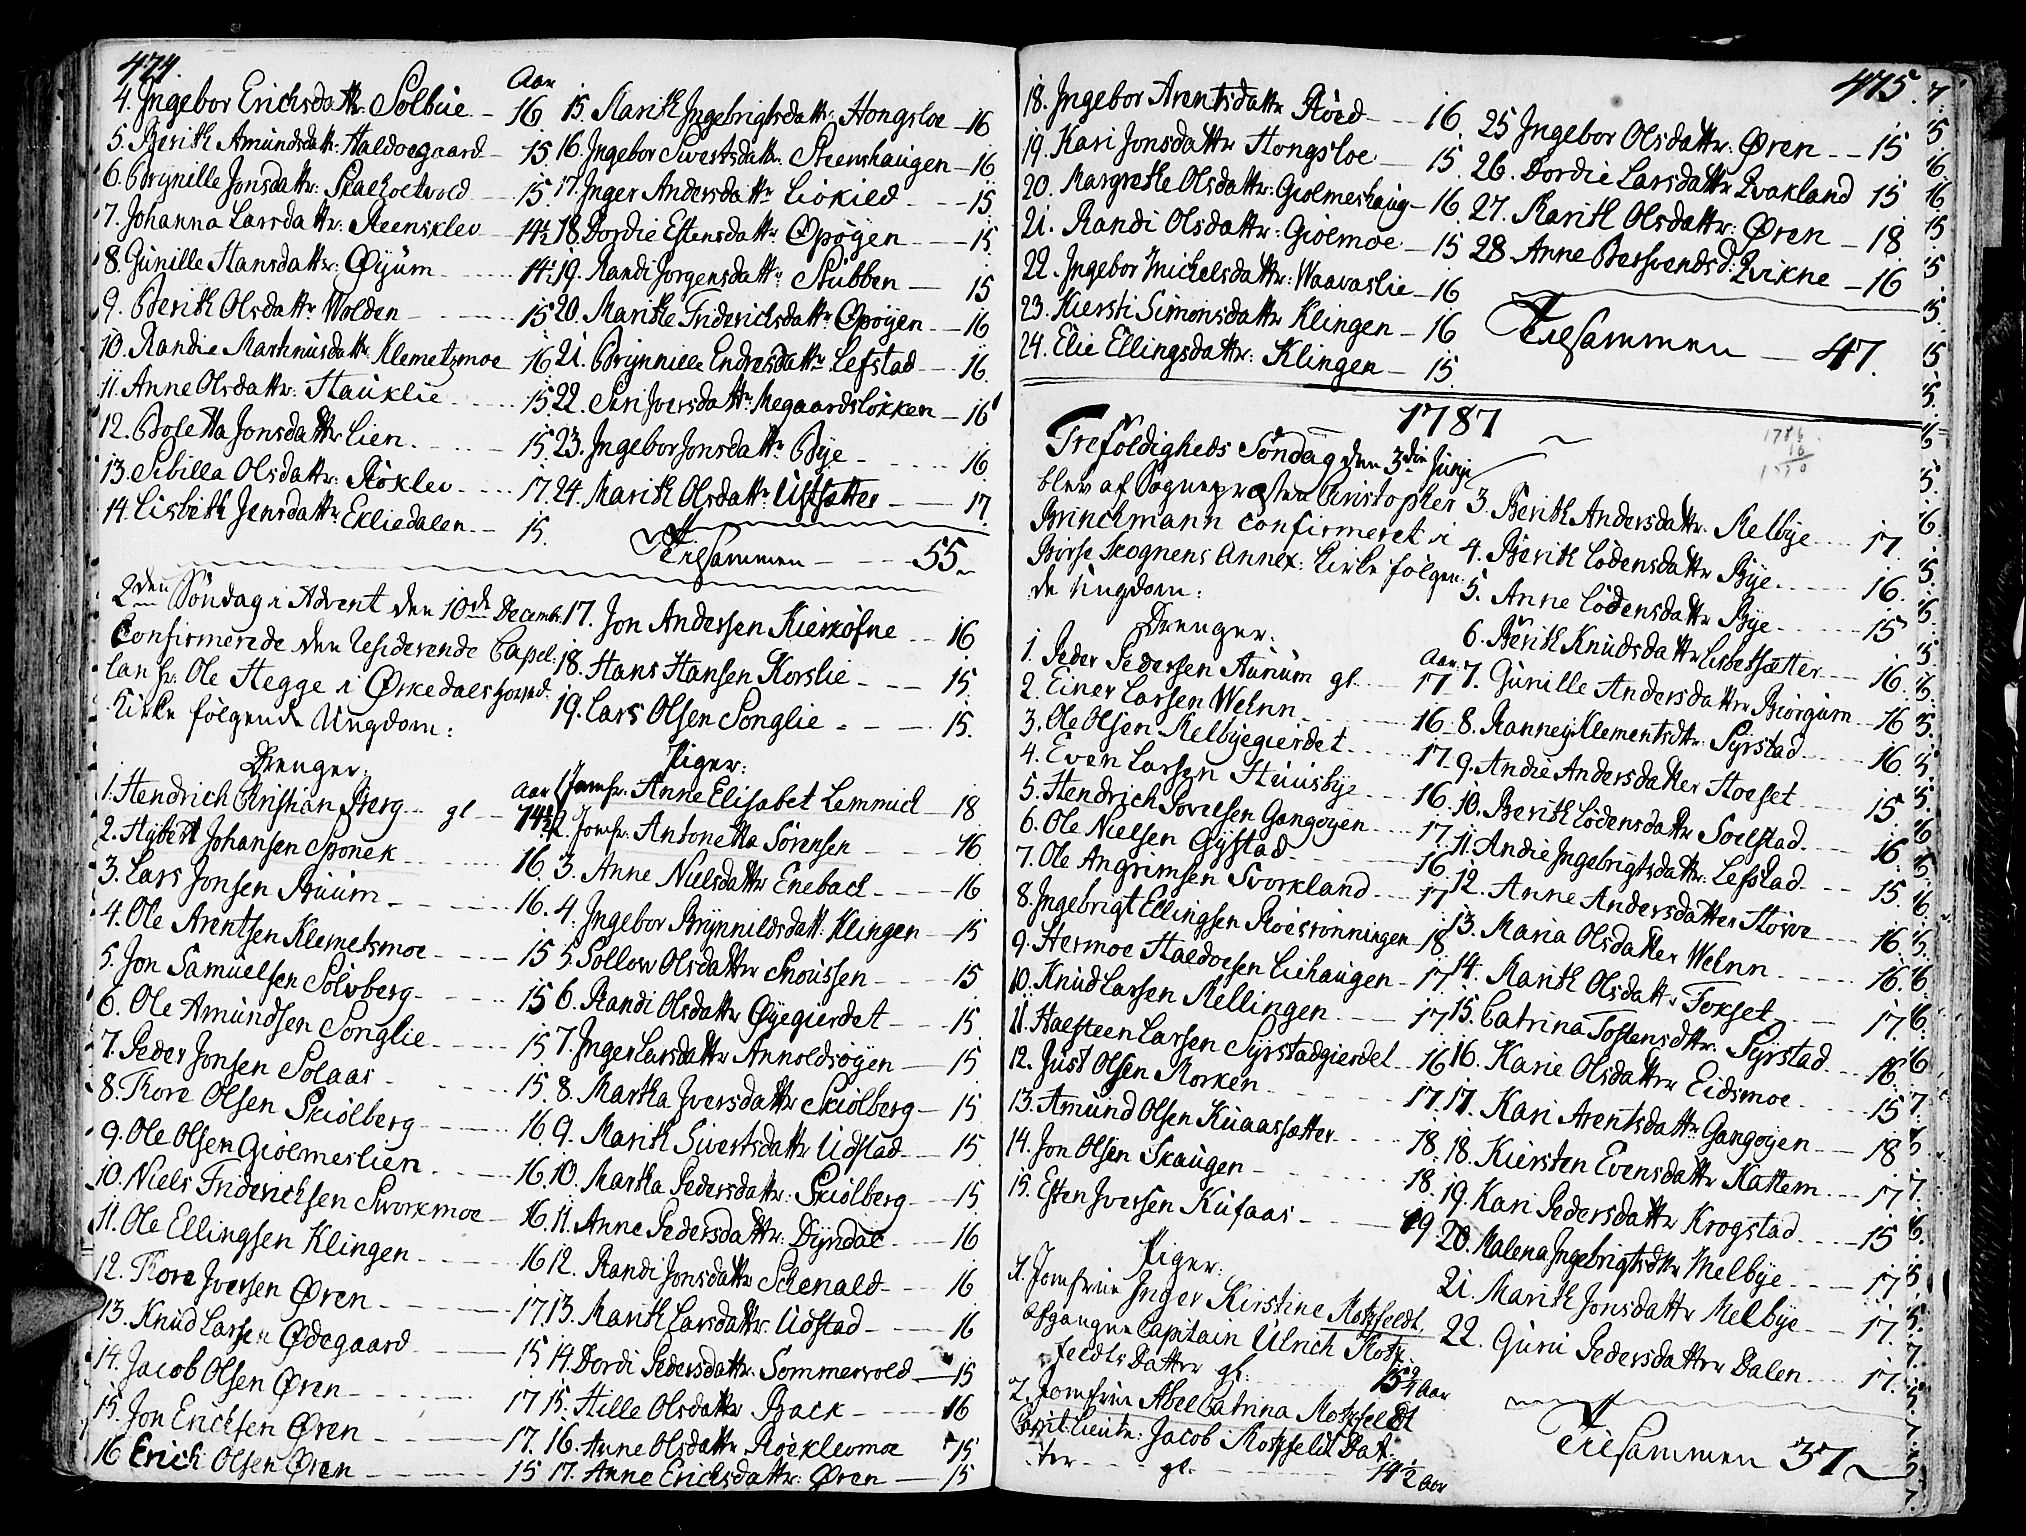 474.
Aar
4. Ingebor Erichsdattr: Solbue - 16
5. Berith Amundsdatt: Haldoegaard - 15
6. Brynille Jonsdattr: - 15
7. Johanna Larsdattr: Steensklev - 14½
8. Gunille Hansdattr: Øyum - 14½
9. Berith Olsdattr Wolden - 15
10. Randie Marthnusdattr Klemetzmoe 16
11. Anne Olsdattr: Hauklie - 15
12. Boletta Jonsdattr Lien - 15
13. Sibilla Olsdattr: Røklev - 17
14. Lisbeth Jensdattr Ekliedalen - 15.
15. Marith Ingebrigtsdattr: Hongsloe - 16
16. Ingebor Sivertsdattr: Steenshaugen - 16
17. Inger Andersdattr Liøkild - 15
18. Dordie Estensdattr Opøyen - 15
19. Randi Jorgensdattr Stubben - 15
20. Marithe Friderichsdattr Opøyen - 16
21. Brynnille Endresdattr Lefstad - 16
22. Siri Iversdattr Megaardsløkken - 16
23. Ingebor Jonsdattr Bye - 16
24. Marith Olsdattr Ustsætter - 17.
Tilsammen - 55
2den Søndag i Advent den 10de Decembr.
Confirmerede den Residerende Capel:
lan hr: Ole Hegge i Ørkedals Hoved
Kirke følgende Ungdom:
Drenger: Aar
1. Hendrich Christian Berg - gl - 14½
2. Hybert Johansen Sponek - 16
3. Lars Jonsen Bruum - 16.
4. Ole Arentsen Klemetsmoe - 15
5. Jon Samuelsen Solvberg - 15
6. Ole Amundsen Songlie - 15
7. Peder Jonsen Solaas - 15
8. Thore Olsen Skiølberg - 16
9. Ole Olsen Giølmeslien - 16
10. Niels Friderichsen Svorkmoe - 16
11. Ole Ellingsen Klingen - 16
12. Thore Iversen Øren - 17
13. Knud Larsen Ødegaard - 15
14. Jacob Olsen Øren - 17
15. Jon Erichsen Øren - 17.
16 Erich Olsen Øren - 15
17. Jon Andersen Kierkøfne - 16
18. Hans Hansen Korslie - 15.
19. Lars Olsen Songlie - 15.
Piger:
1 Jomfr. Anne Elisabet Lemmich - 18
2. Jomfr: Antonetta Sørensen - 16
3. Anne Nielsdattr Enebach - 16
4. Ingebor Brynnildsdatt: Klingen - 15
5. Sollow Olsdattr Snoussen - 15
6. Randi Olsdattr Øyegierdet - 15
7. Inger Larsdattr Annoldsøyen - 15
8. Martha Iversdattr Skiølberg - 15
9. Marith Sivertsdattr Udstad - 15
10. Martha Pedersdattr: Skiølberg - 15
11. Anne Pedersdattr: Dyndal - 16
12. Randi Jonsdattr Schenald - 16
13. Marith Larsdattr: Udstad - 16
14. Dordi Pedersdattr: Sommervold - 15
15. Hille Olsdattr Back - 16
16. Anne Olsdattr Røeklevmoe 15
17. Anne Erichsdattr: Øren - 15
475.
18. Ingebor Arentsdattr Røed - 16
19. Kari Jonsdattr Hongsloe - 15
20. Margrethe Olsdattr: Giølmeshaug - 16
21. Randi Olsdattr: Giølmoe - 15
22. Ingebor Michelsdattr: Waavaslie - 16
23. Kiersti Simonsdattr Klingen - 16
24. Elie Ellingsdattr: Klingen - 15.
25 Ingebor Olsdattr: Øren - 15
26. Dordie Larsdattr Qvakland 15
27. Marith Olsdattr: Øren - 18.
28. Anne Bersvendsd: Qvikne - 16
Tilsammen - 47.
1787
1786
16
1770
Trefoldigheds Søndag den 3die Junji
blev af Sognepræsten Christopher
Brinchmann Confirmeret i
Børse Skognens Annex: Kirke følgen-
de Ungdom:
Drenger: Aar
1. Peder Pedersen Aurum gl - 17
2. Einer Larsen Welnn - 16
3. Ole Olsen Melbyegierdet - 17
4. Even Larsen Huusbye - 16
5. Hendrich Sorelsen Gangøyen - 17
6. Ole Nielsen Øystad - 16
7. Ole Angrimsen Svorkland - 17
8. Ingebrigt Ellingsen Røesrønningen 18
9. Hermoe Haldoesen Liehaugen - 17
10. Knud Larsen Mellingen - 17
11. Halsteen Larsen Syrstadgierdet - 16
12. Just Olsen Morken - 17
13. Amund Olsen Kuaassætter - 18
14. Jon Olsen Skaugen - 18.
15. Esten Iversen Kufaas - 19
Piger:
1. Jomfrue Inger Kirstine Motzfeldt,
afgangne Capitain Ulrich Motz
feldts Datter gl: - 15¾ Aar
2. Jomfrue Abel Catrina Motzfeldt
Prmt: Lieutn: Jacob Motzfeldt Dat-
ter - gl: - 14½ Aar
3. Berith Andersdattr: Melbye - 17
4. Berith Lodensdattr Bye - 16.
5. Anne Lodensdattr Bye - 15
6. Berith Knudsdattr Lisbetsætter - 16
7. Gunille Andersdattr Biørgum - 16
8. Ranney Klementsdttr: Syrstad - 16.
9. Andie Andersdatter Hoeset - 15
10. Berith Lodensdattr Soelstad - 16
11. Andie Ingebrigtsdattr: Lefstad - 15
12. Anne Andersdatter Hovve - 16
13. Maria Olsdatter Welnn - 16
14. Marith Olsdattr Foxset - 17
15. Catrina Tostensdttr: Syrstad - 16
16. Karie Olsdattr Eidsmoe - 15
17. Kari Arentsdattr Gangøyen - 18
18. Kiersten Evensdattr Kattem - 17
19. Kari Pedersdattr Krogstad - 15
20. Malena Ingebrigtsdttr Melbye - 17
21. Marith Jonsdattr Melbye - 17.
22. Guru Pedersdattr Dalen - 17.
Tilsammen 37